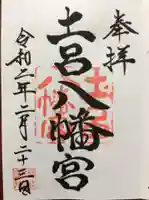 奉拝
土呂八幡宮
令和二年二月二十三日